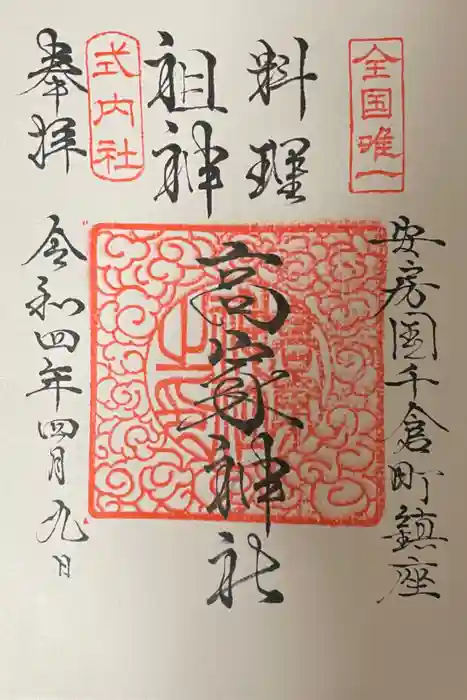 全国唯一
安房国千倉町鎮座
料理
祖神
高家神社
式内社
奉拝
令和四年四月九日